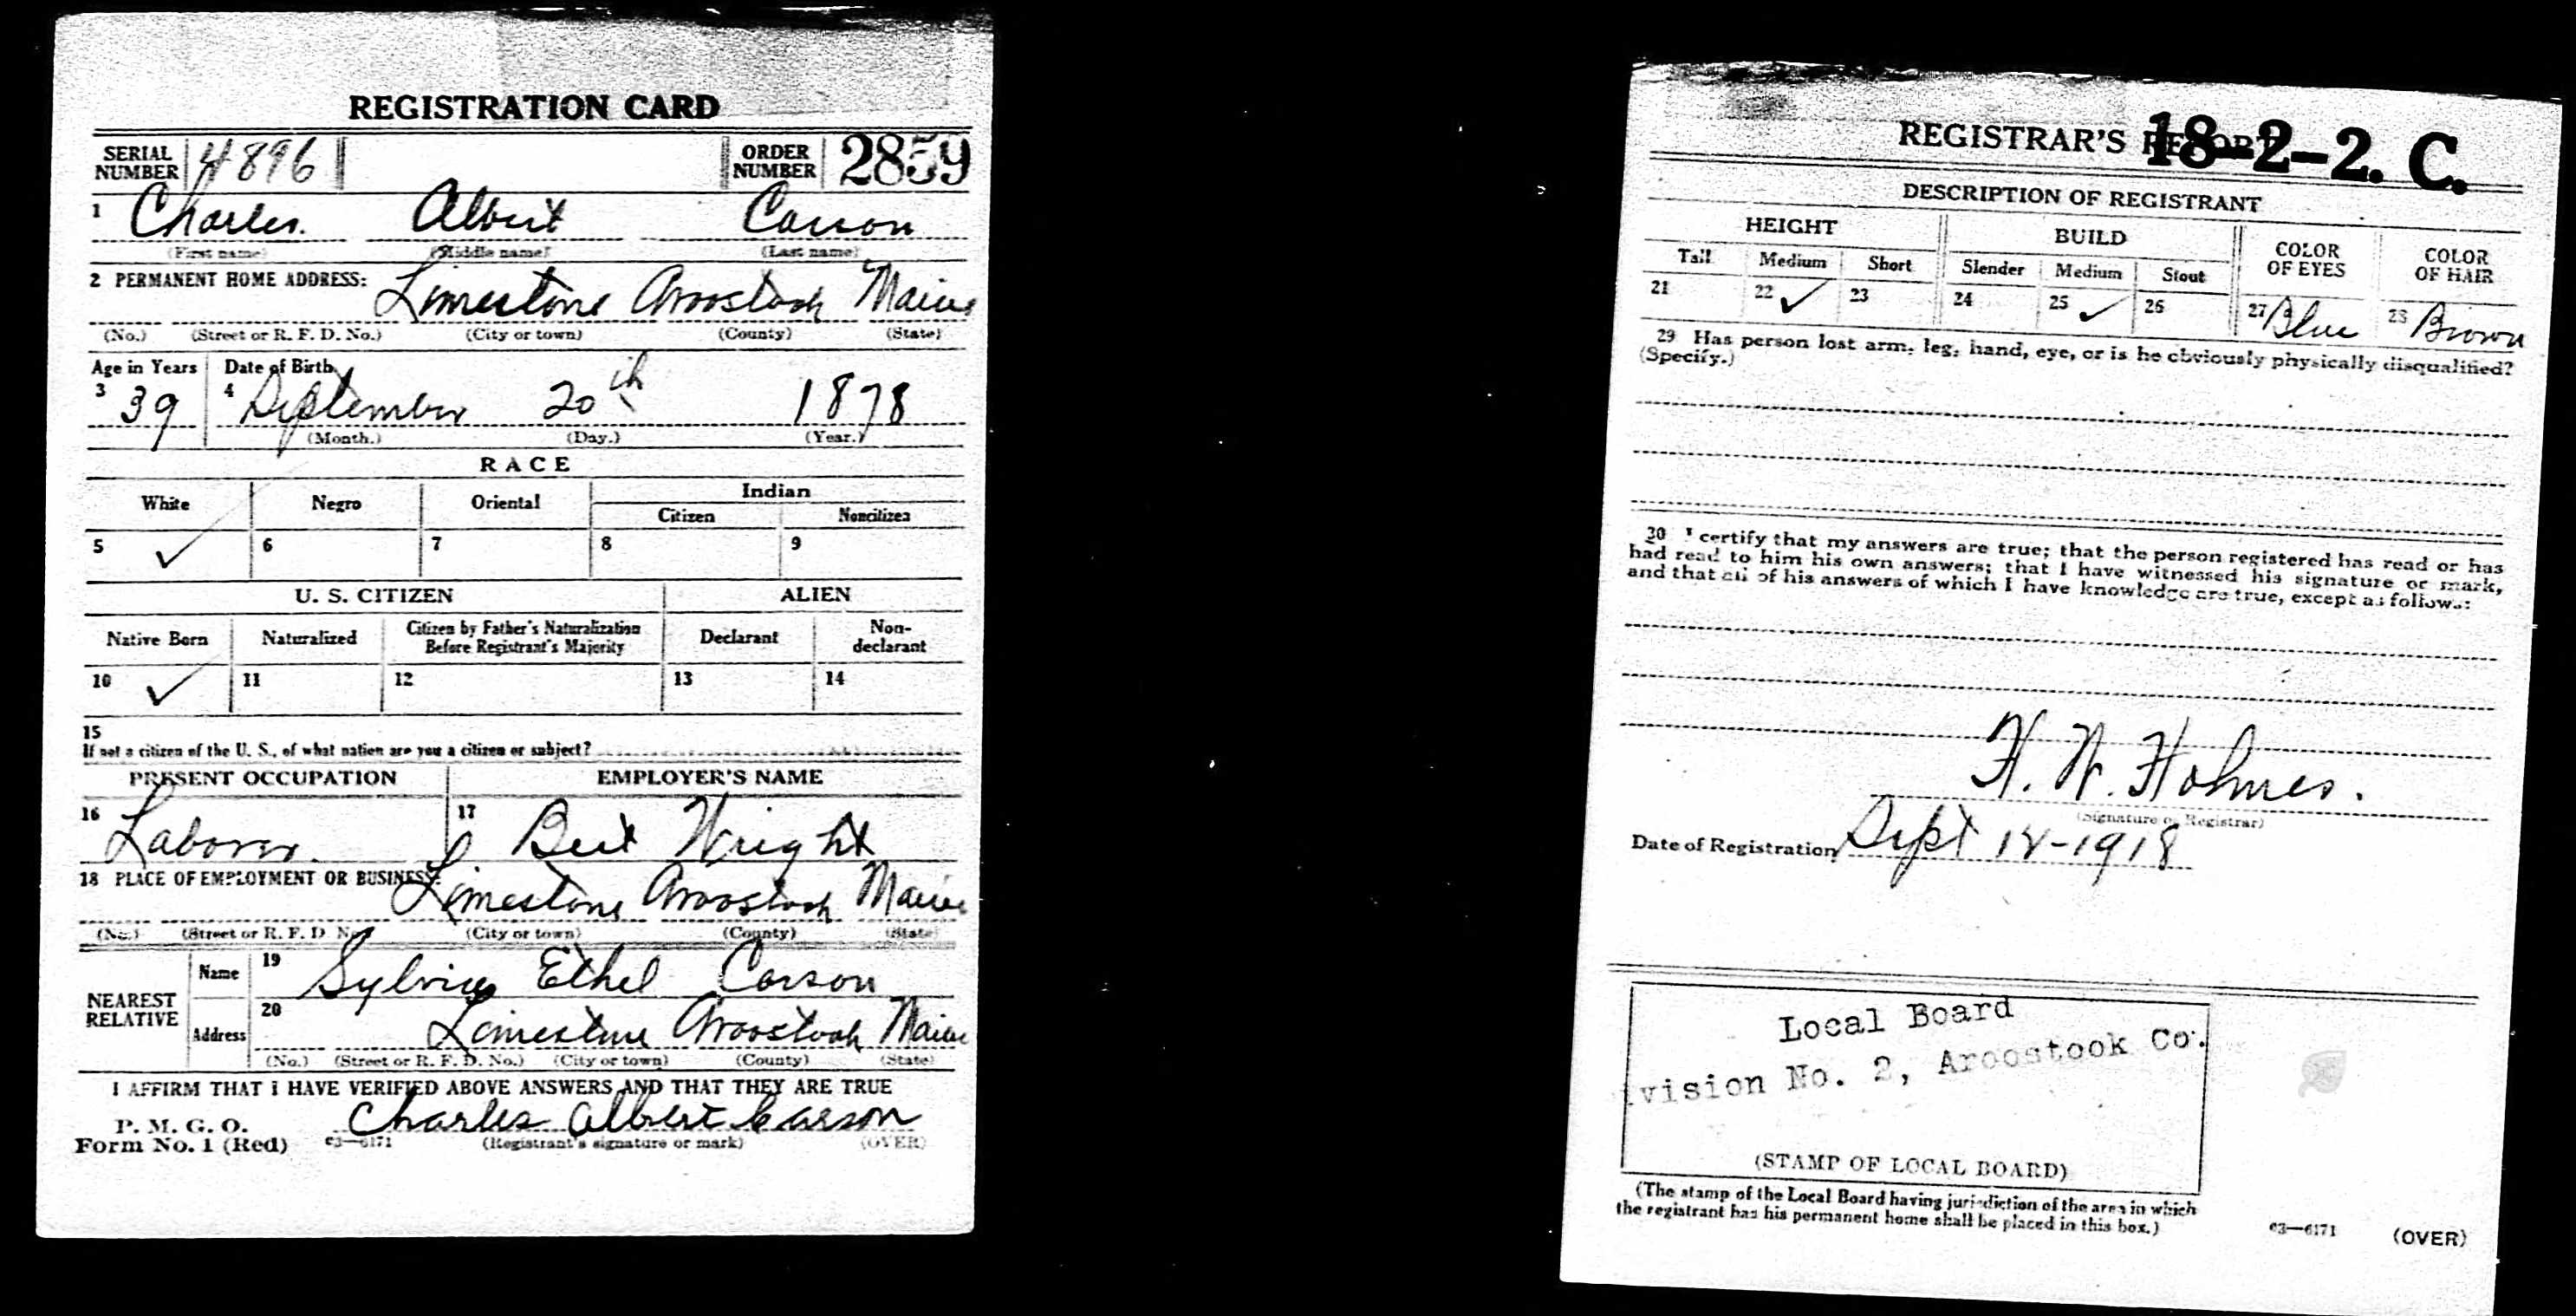 REGISTRATION CARD
SERIAL NUMBER 4896 ORDER NUMBER 2859
1 Charles Albert Carson
(First name) (Middle name) (Last name)
2 PERMANENT HOME ADDRESS: Limestone Aroostook Maine
(No.) (Street or R. F. D. No.) (City or town) (County) (State)
Age in Years Date of Birth
3 39 4 September 20th 1878
(Month.) (Day.) (Year.)
RACE
White Negro Oriental Indian
Citizen Noncitizen
5 ✓ 6 7 8 9
U. S. CITIZEN ALIEN
Native Born Naturalized Citizen by Father's Naturalization Before Registrant's Majority Declarant Non-declarant
10 ✓ 11 12 13 14
15
If not a citizen of the U. S., of what nation are you a citizen or subject?
PRESENT OCCUPATION EMPLOYER'S NAME
16 Laborer. 17 Bert Wright
18 PLACE OF EMPLOYMENT OR BUSINESS: Limestone Aroostook Maine
(No.) (Street or R. F. D. No.) (City or town) (County) (State)
NEAREST RELATIVE
Name 19 Sylvia Ethel Carson
Address 20 Limestone Aroostook Maine
(No.) (Street or R. F. D. No.) (City or town) (County) (State)
I AFFIRM THAT I HAVE VERIFIED ABOVE ANSWERS AND THAT THEY ARE TRUE
P. M. G. O.
Form No. 1 (Red) 03—6171 Charles Albert Carson
(Registrant's signature or mark) (OVER)
REGISTRAR'S REPORT 18-2-2. C.
DESCRIPTION OF REGISTRANT
HEIGHT BUILD COLOR OF EYES COLOR OF HAIR
Tall Medium Short Slender Medium Stout
21 22 ✓ 23 24 25 ✓ 26 27 Blue 28 Brown
29 Has person lost arm, leg, hand, eye, or is he obviously physically disqualified?
(Specify.)
30 I certify that my answers are true; that the person registered has read or has
had read to him his own answers; that I have witnessed his signature or mark,
and that all of his answers of which I have knowledge are true, except as follows:
H. W. Holmes.
(Signature of Registrar)
Date of Registration Sept 12-1918
Local Board
ivision No. 2, Aroostook Co.
(STAMP OF LOCAL BOARD)
(The stamp of the Local Board having jurisdiction of the area in which
the registrant has his permanent home shall be placed in this box.)
03—6171 (OVER)